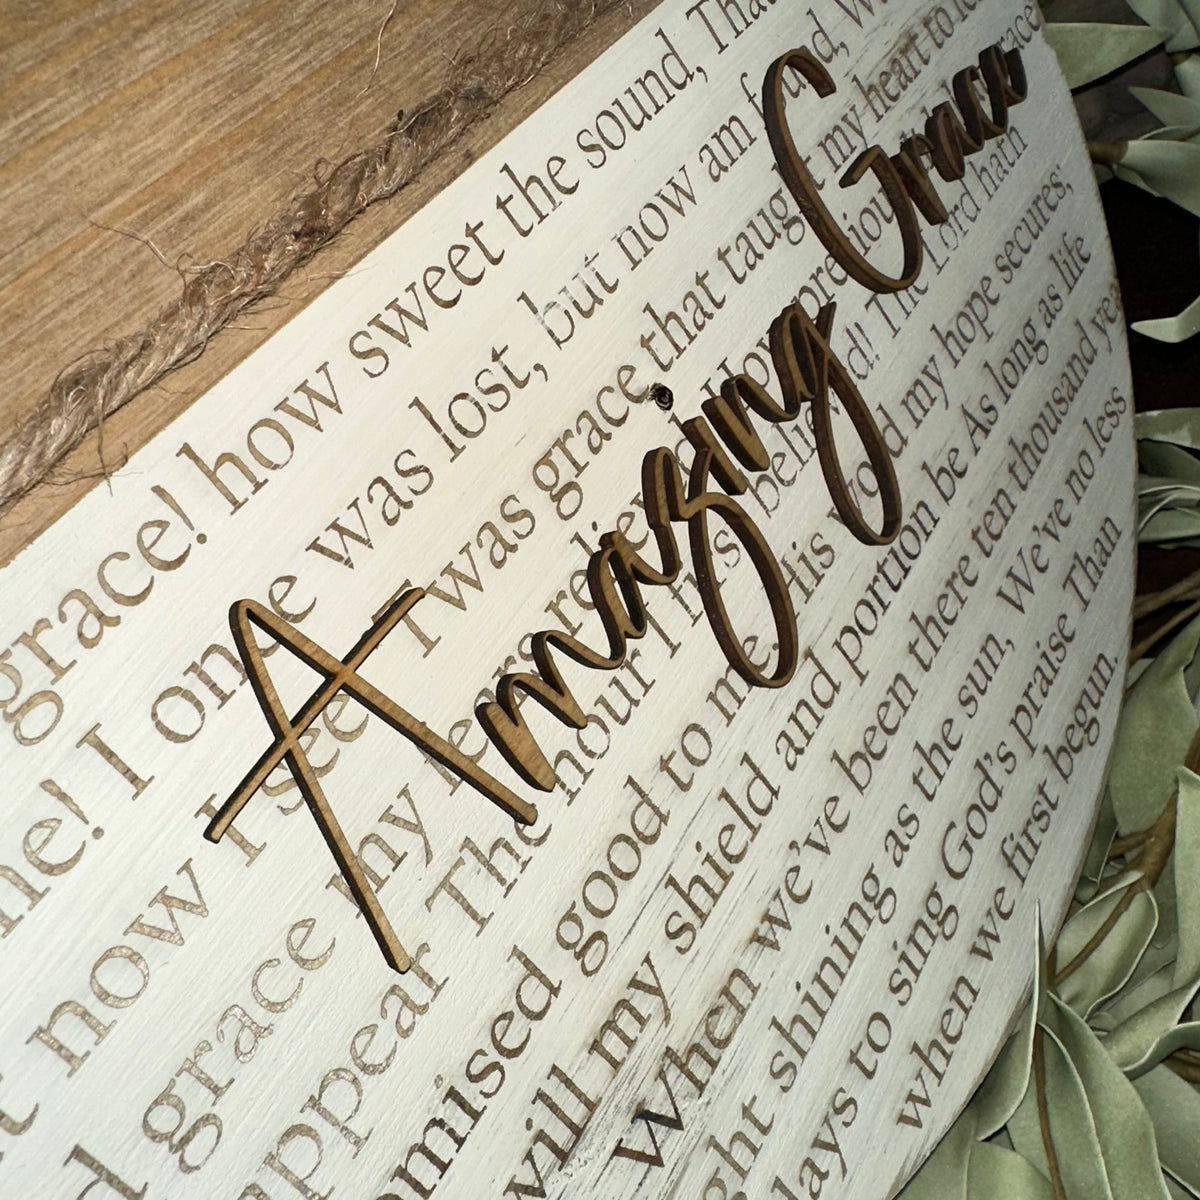 grace! how sweet the sound, That
me! I once was lost, but now am found,
now I see. 'Twas grace that taught my heart to
grace my fears relieved; How precious did that grace
appear The hour I first believed! The Lord hath
promised good to me, His word my hope secures;
will my shield and portion be As long as life
When we've been there ten thousand years
shining as the sun, We've no less
days to sing God's praise Than
when we first begun.
Amazing Grace